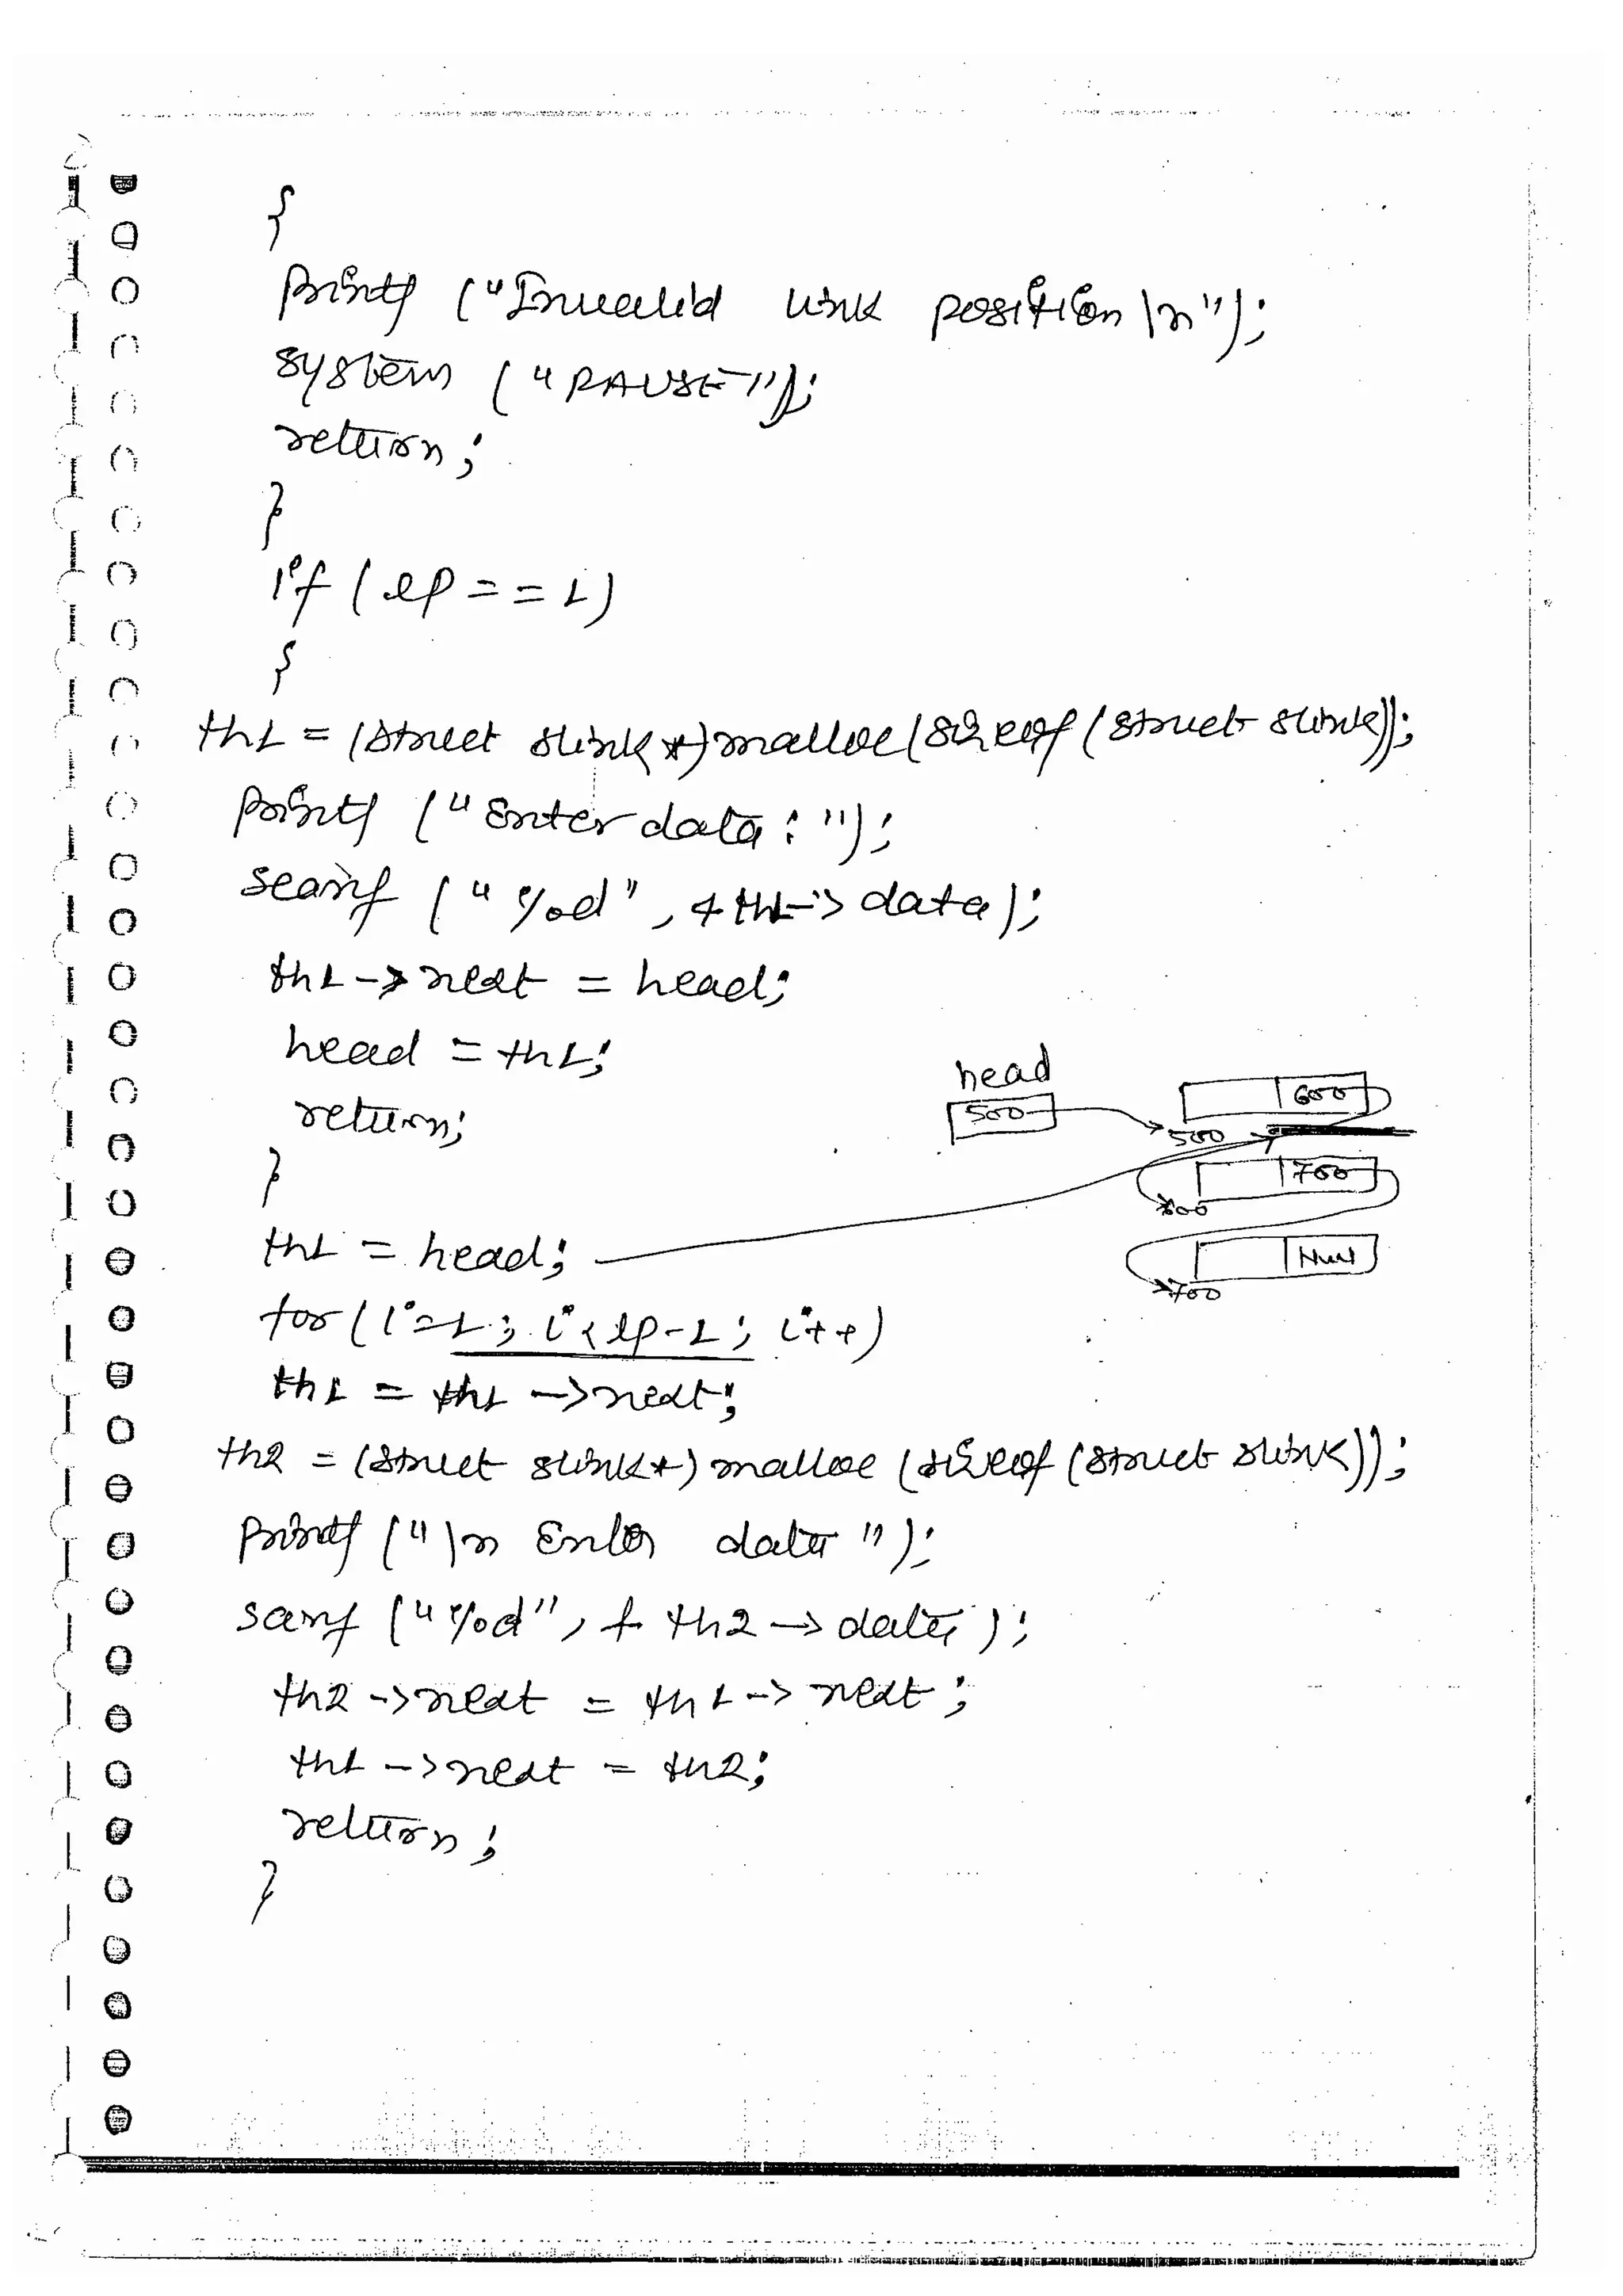 {
printf ("Invalid link position \n");
system ("PAUSE");
return;
}
if (lp == 1)
{
th1 = (struct slink *) malloc (sizeof (struct slink));
printf ("Enter data : ");
scanf ("%d", & th1 -> data);
th1 -> next = head;
head = th1;
return;
}
head
500
600
500
700
600
Null
700
th1 = head;
for (i=1; i < lp-1; i++)
th1 = th1 -> next;
th2 = (struct slink *) malloc (sizeof (struct slink));
printf ("\n Enter data ");
scanf ("%d", & th2 -> data);
th2 -> next = th1 -> next;
th1 -> next = th2;
return;
}